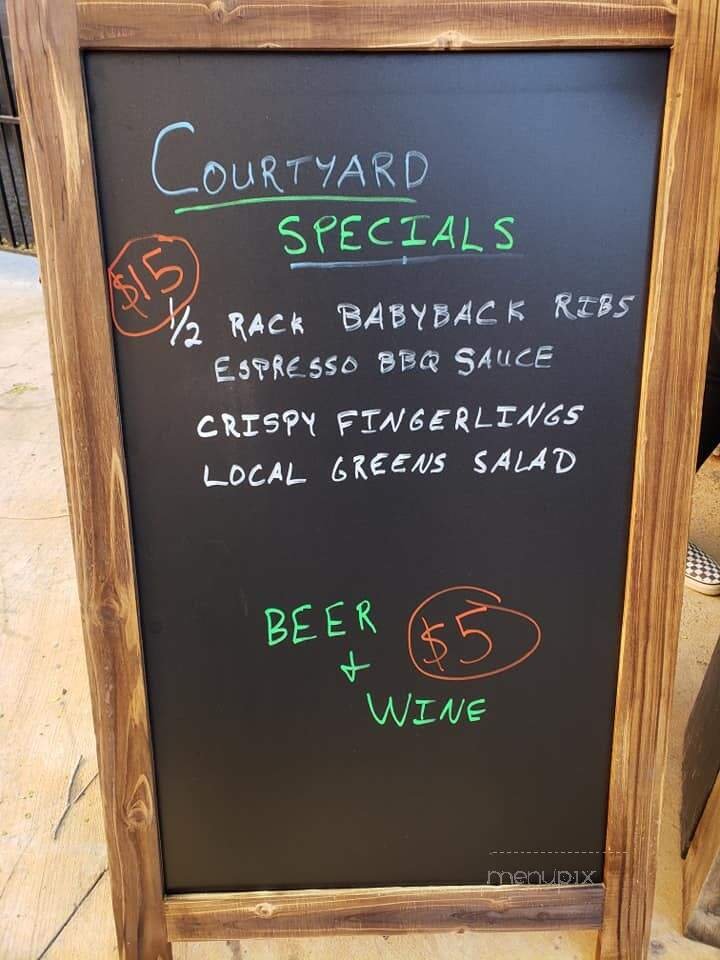 COURTYARD
SPECIALS
$15
1/2 RACK BABYBACK RIBS
ESPRESSO BBQ SAUCE
CRISPY FINGERLINGS
LOCAL GREENS SALAD
BEER $5
+
WINE
menupix